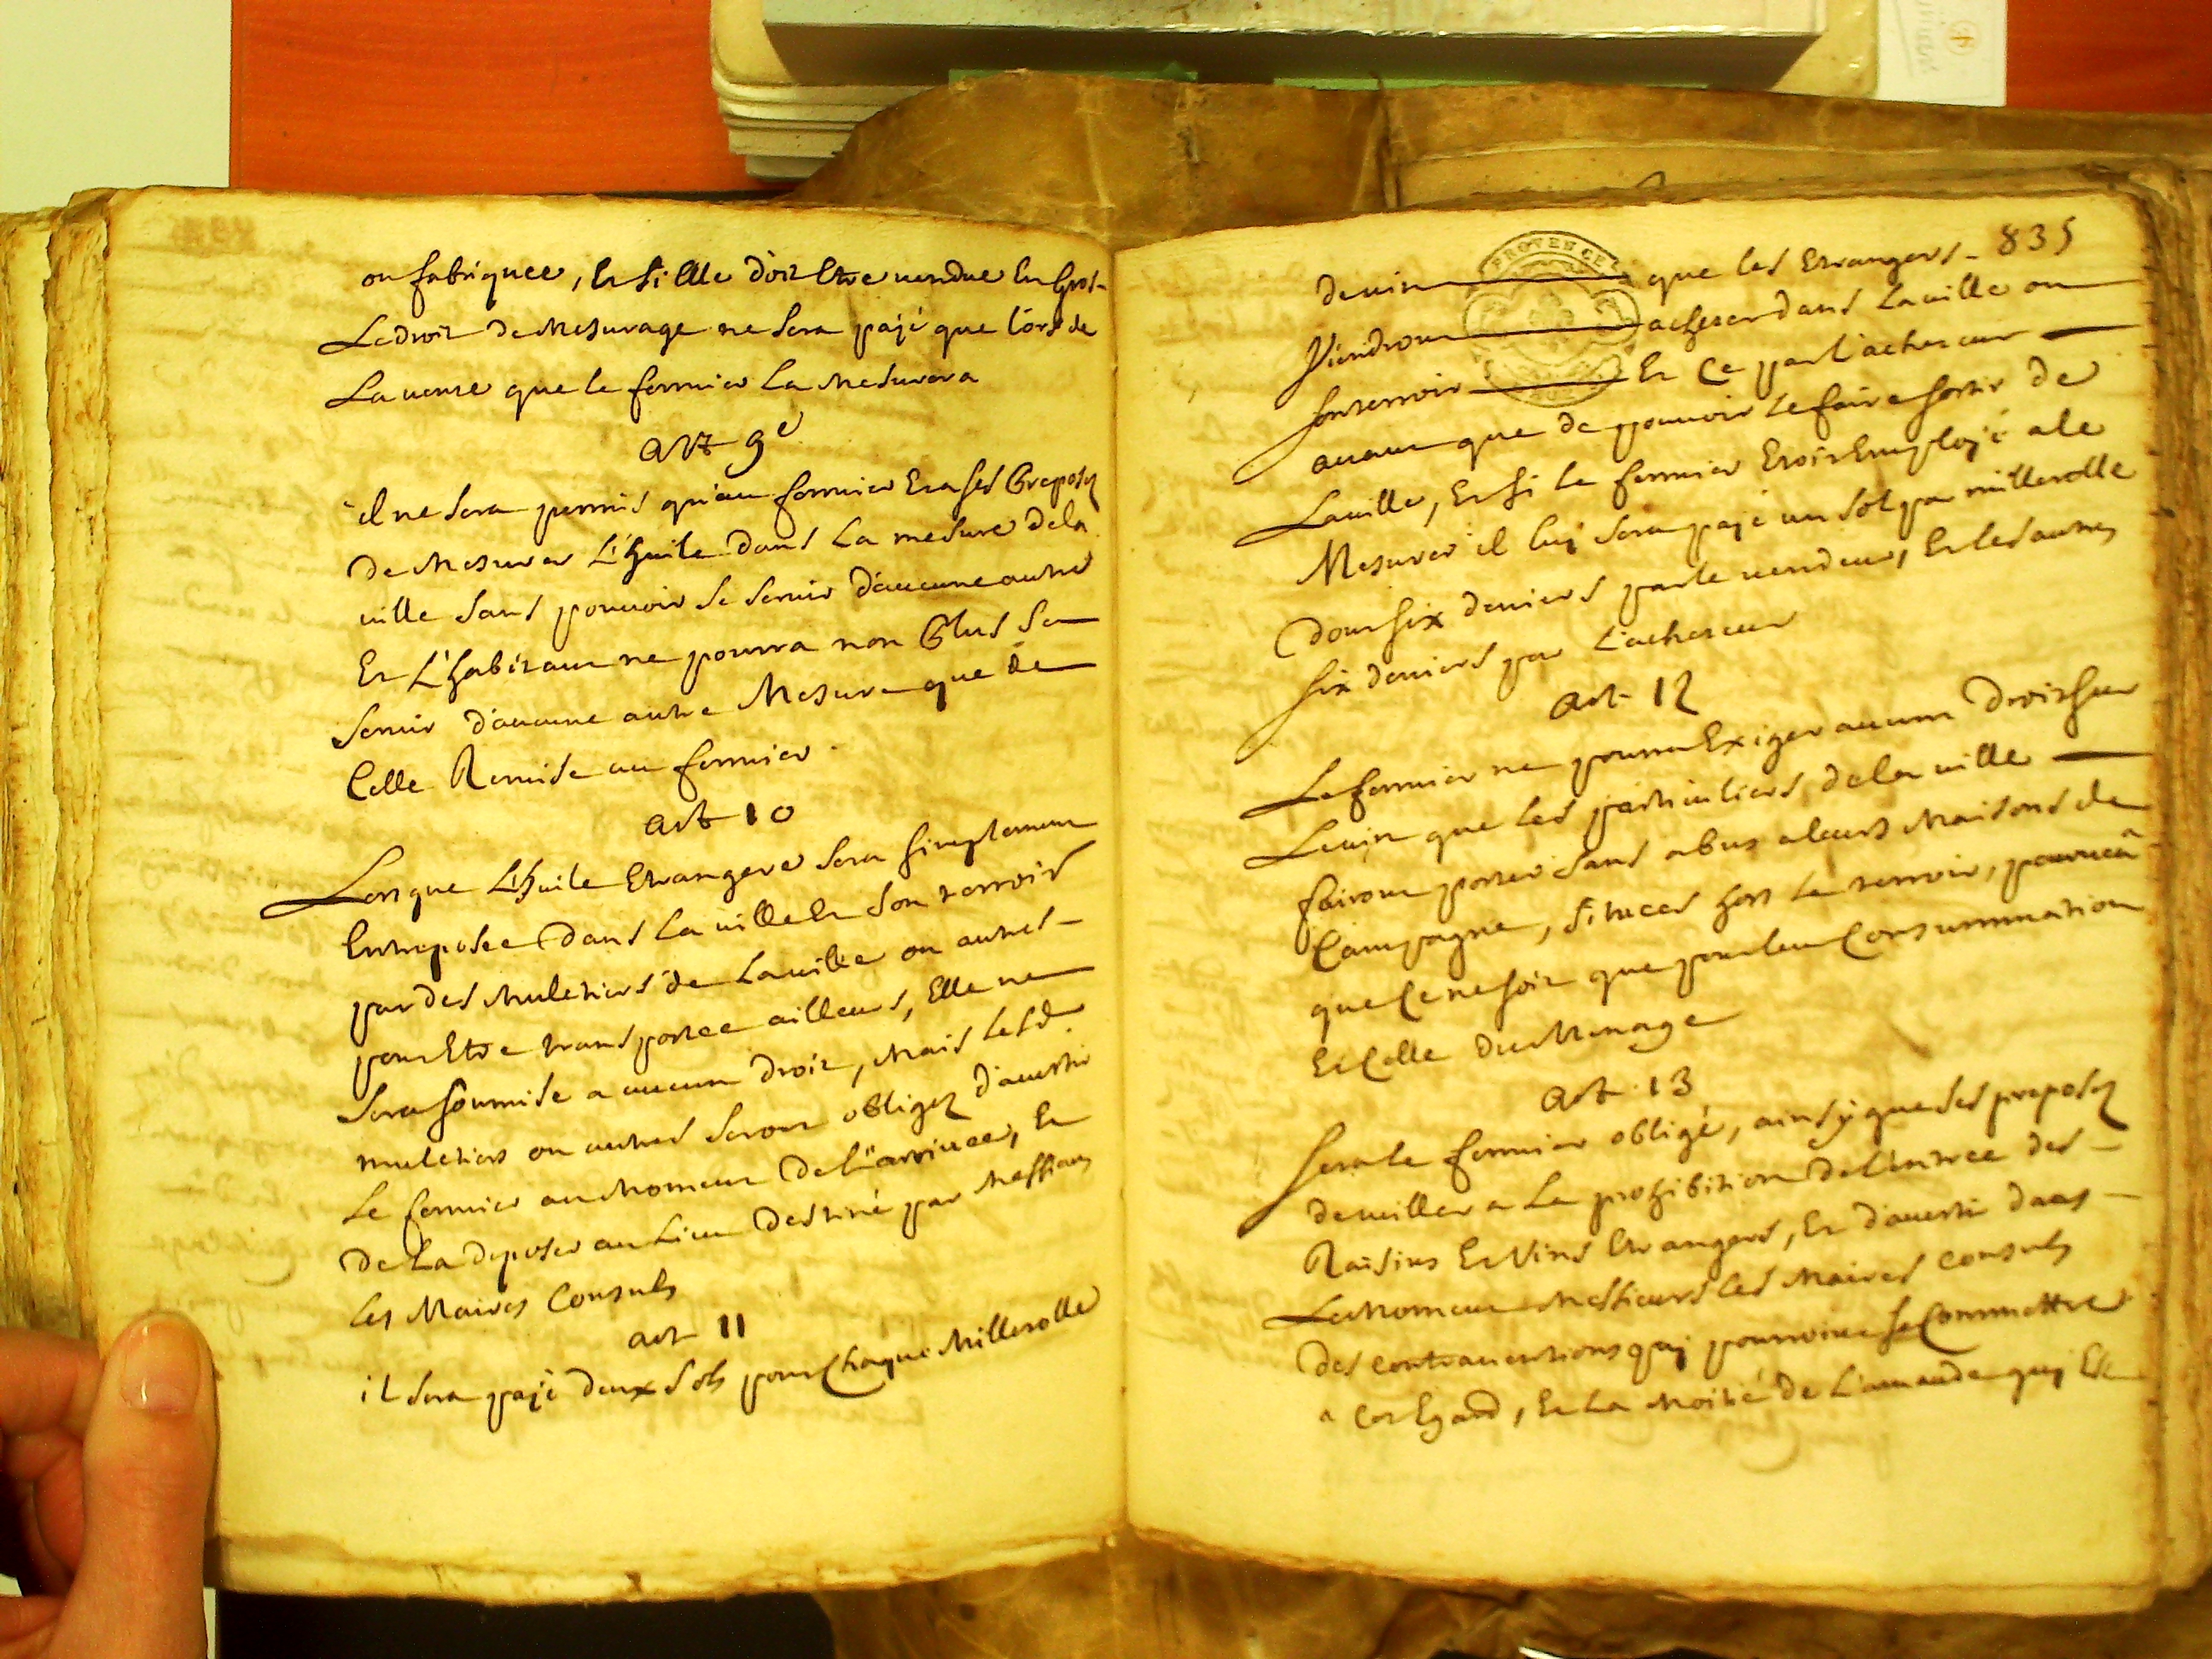 ou fabriquee, Et si Elle doit Etre vendue En gros
Le droit de Mesurage ne sera pajé que lors de
La vente que le fermier La Mesurera
art 9e
il ne sera permis qu'au fermier Et a ses Preposez
De Mesurer L'huile dans La mesure dela
ville sans pouvoir se servir d'aucune autre
Et L'habitant ne pourra non Plus se
servir d'aucune autre Mesure que de
Celle Remise au fermier
art 10
Lorsque L'huile Etrangere sera simplement
Entreposée dans La ville Et son terroir
par des Muletiers de La ville ou autres
pour Etre transportee ailleurs, Elle ne
sera soumise a aucun droit, Mais lesd.
muletiers ou autres seront obligez d'avertir
Le fermier au Moment de l'arrivée, Et
De La deposer au Lieu destiné par Messieurs
Les Maires Consuls
art 11
il sera pajé deux sols pour Chaque Millerolle
835
de vin que les Etrangers
Viendront acheter dans La ville ou
son terroir Et Ce par l'acheteur
avant que de pouvoir Le faire sortir de
La ville, Et si Le fermier Etoit Emplojé a le
Mesurer il luj sera pajé un sol par millerolle
dont six deniers par le vendeur, Et les autres
six deniers par L'acheteur
art 12
Le fermier ne pourra Exiger aucun droit sur
Le vin que les particuliers dela ville
fairont porter sans abus a leurs Maisons de
Campagne, situees hors Le terroir, pourveu
que Ce ne soit que pour leur Consummation
Et Celle du Menage
art 13
sera le fermier obligé, ainsy que ses preposez
de veiller a La prohibition de l'entree des
Raisins Et Vins Etrangers, Et d'avertir dans
Le Moment Messieurs Les Maires Consuls
des contraventions quj pourroient se Commettre
a cet Egard, Et La Moitié de L'amande quj Est